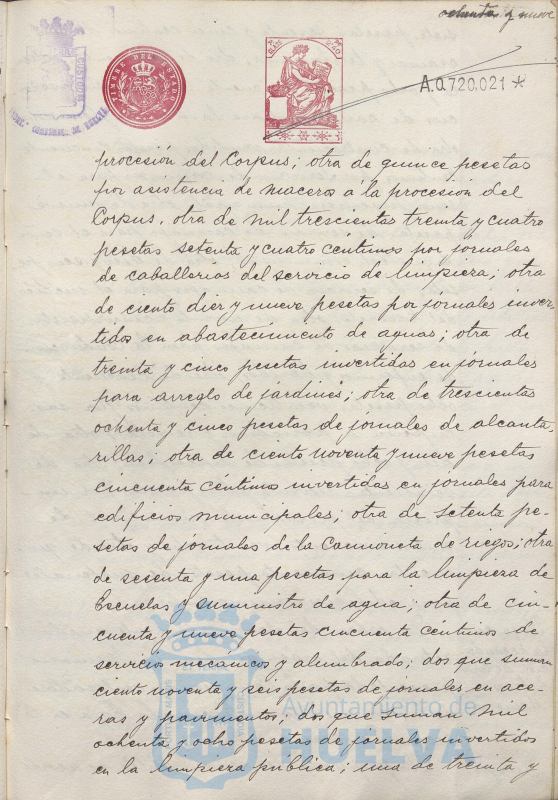 ochenta y nueve
TIMBRE DEL ESTADO
A.0,720,021*
procesión del Corpus; otra de quince pesetas
por asistencia de maceros a la procesion del
Corpus, otra de mil trescientas treinta y cuatro
pesetas setenta y cuatro céntimos por jornales
de caballerias del servicio de limpieza; otra
de ciento diez y nueve pesetas por jornales inver-
tidos en abastecimiento de aguas; otra de
treinta y cinco pesetas invertidas en jornales
para arreglo de jardines; otra de trescientas
ochenta y cinco pesetas de jornales de alcanta-
rillas; otra de ciento noventa y nueve pesetas
cincuenta céntimos invertidas en jornales para
edificios municipales; otra de setenta pe-
setas de jornales de la camioneta de riegos; otra
de sesenta y una pesetas para la limpieza de
Escuelas y suministro de agua; otra de cin-
cuenta y nueve pesetas cincuenta céntimos de
servicios mecanicos y alumbrado; dos que suman
ciento noventa y seis pesetas de jornales en ace-
ras y pavimentos; dos que suman mil
ochenta y ocho pesetas de jornales invertidos
en la limpieza pública; una de treinta y
Ayuntamiento de
HUELVA